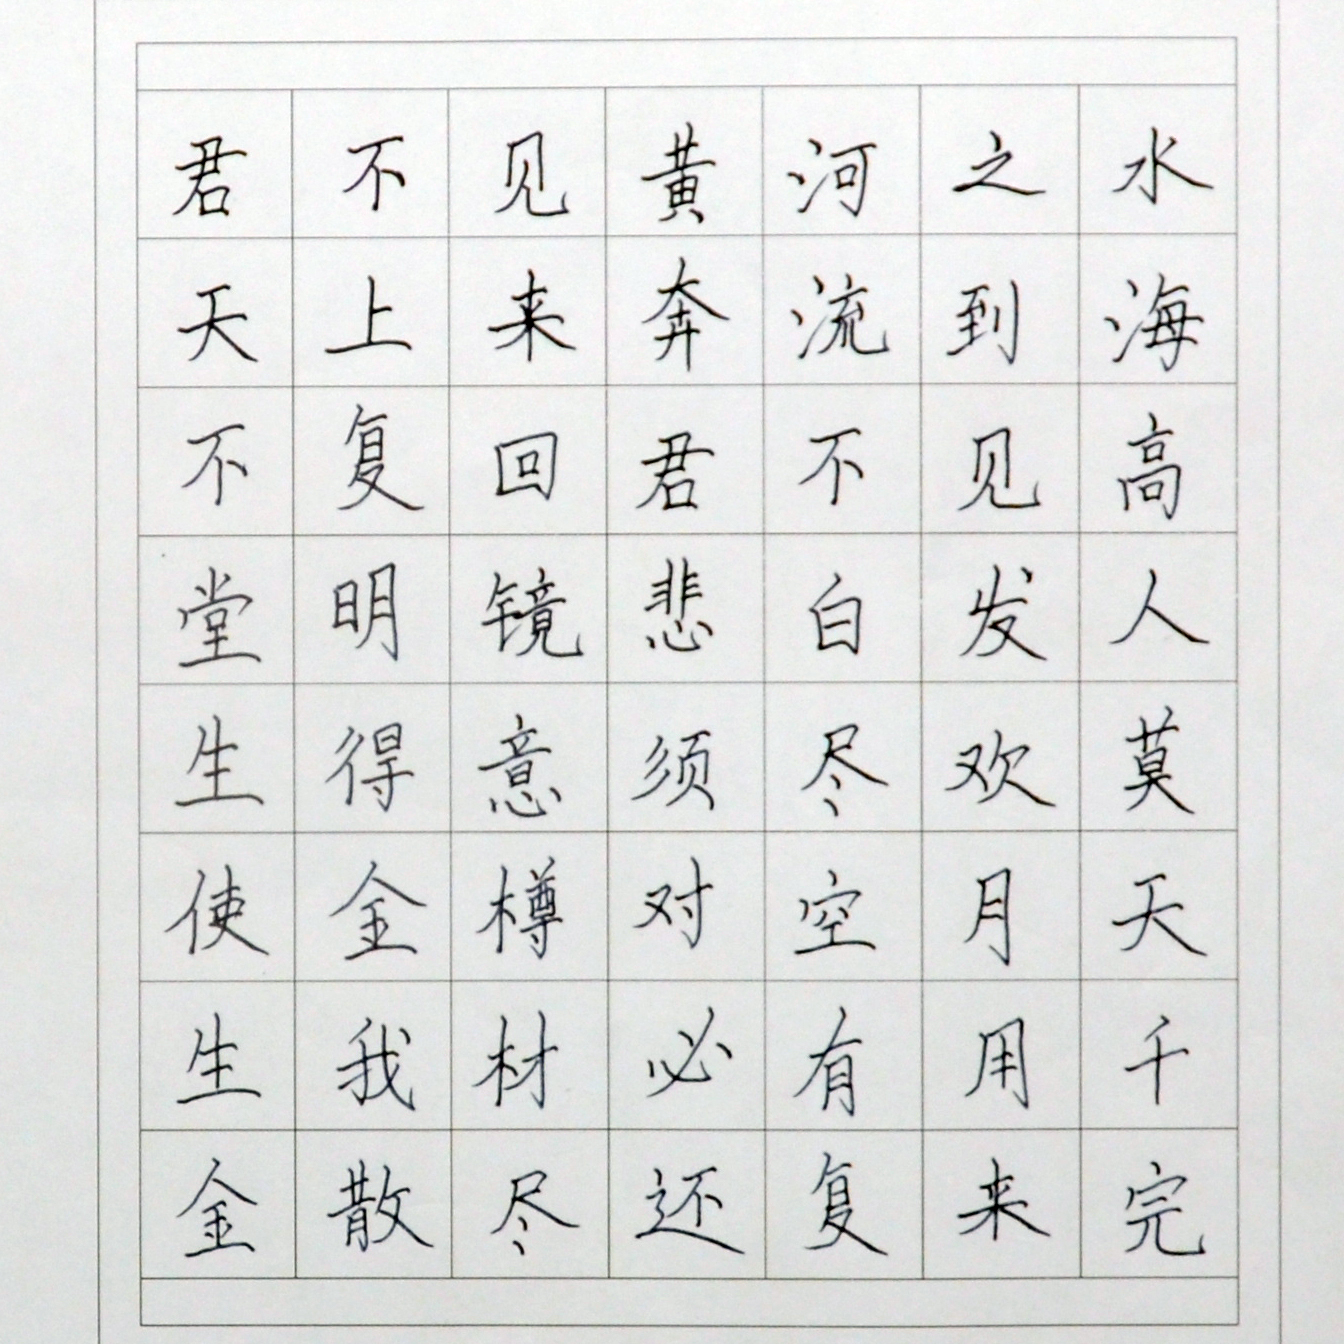 君不见黄河之水
天上来奔流到海
不复回君不见高
堂明镜悲白发人
生得意须尽欢莫
使金樽对空月天
生我材必有用千
金散尽还复来完